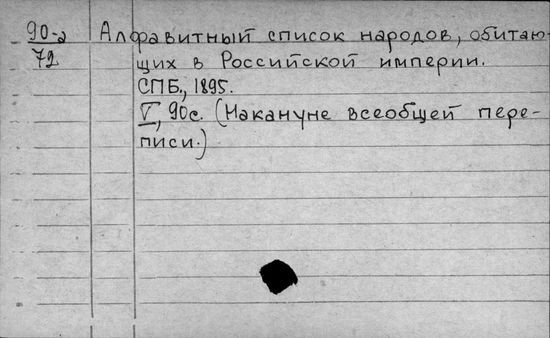 90-а
72
Алфавитный список народов, обитаю-
щих в Российской империи.
СПБ., 1895.
V, 90с. (Накануне всеобщей пере-
писи.)